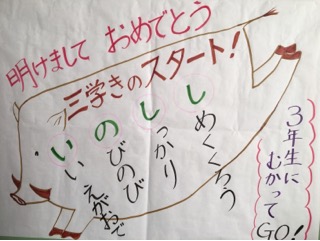 明けまして おめでとう
三学きのスタート!
しめくくろう
しっかり
のびのび
いい えがおで
3年生に
むかって
GO!